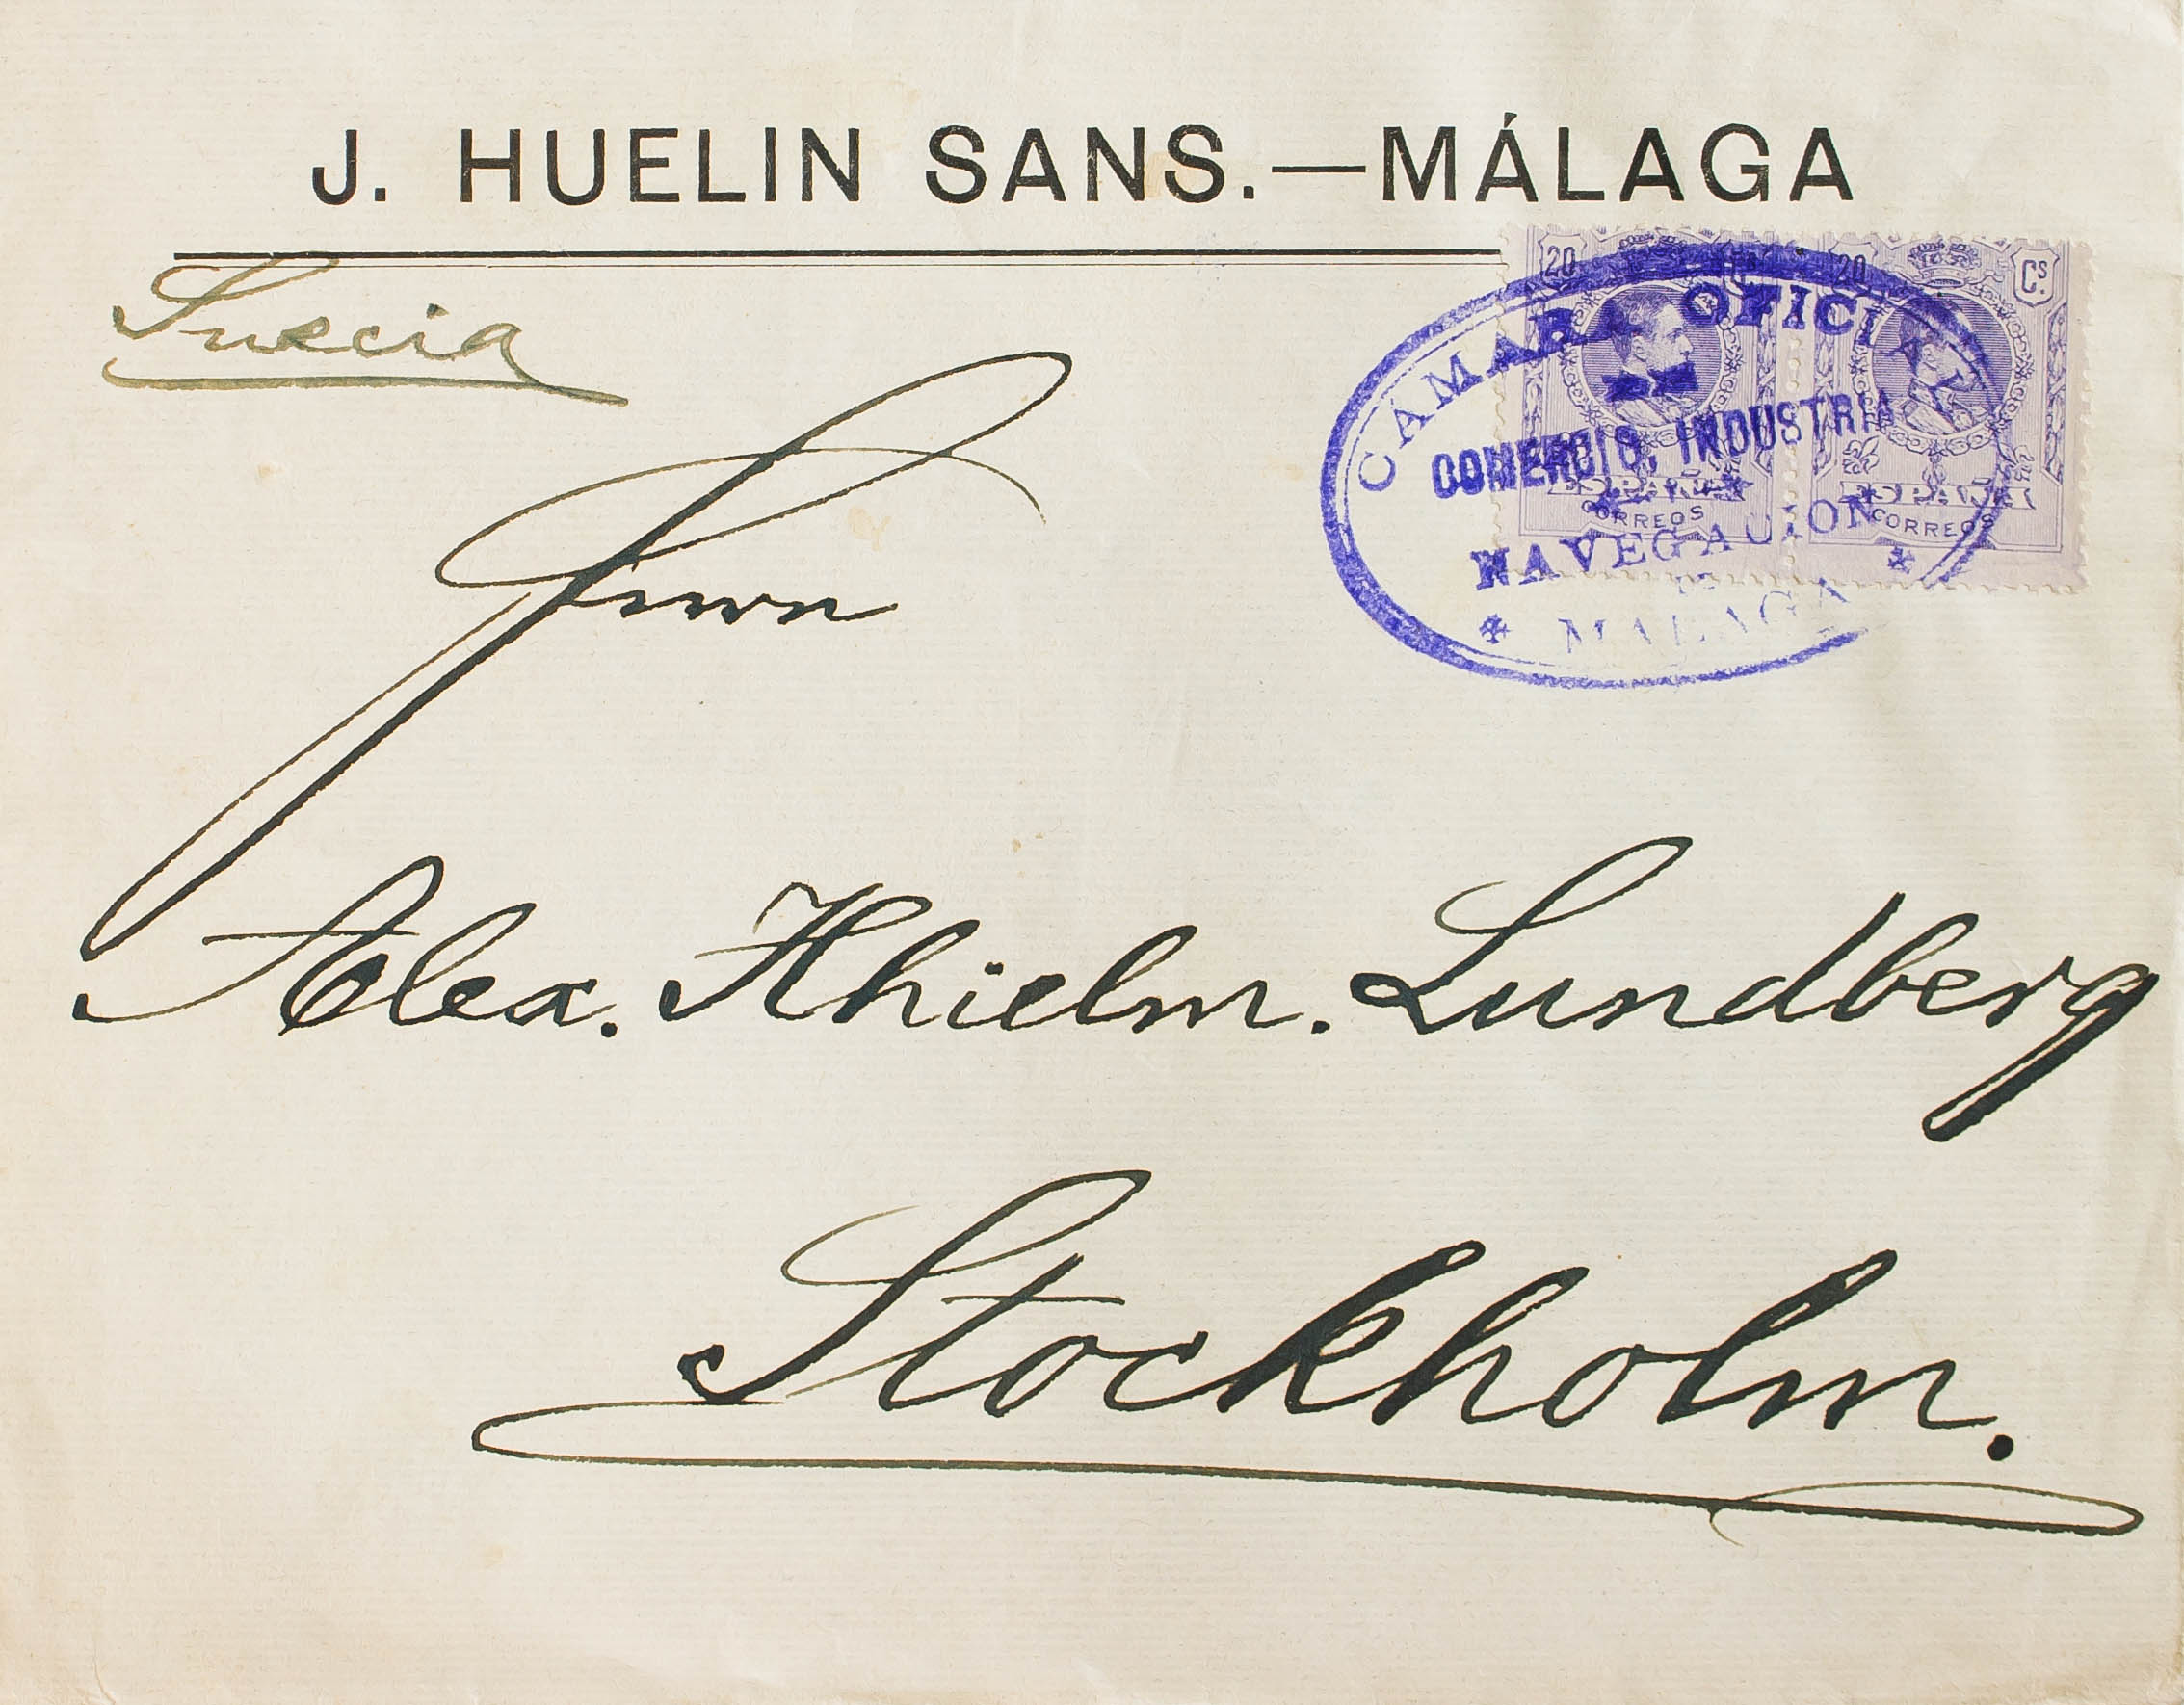 J. HUELIN SANS.—MÁLAGA
Suecia
20 Cs. 20 Cs.
CÁMARA OFICIAL
DE
COMERCIO, INDUSTRIA
Y
NAVEGACION
* MALAGA *
ESPAÑA ESPAÑA
CORREOS CORREOS
Alex. Khielm. Lundberg
Stockholm.